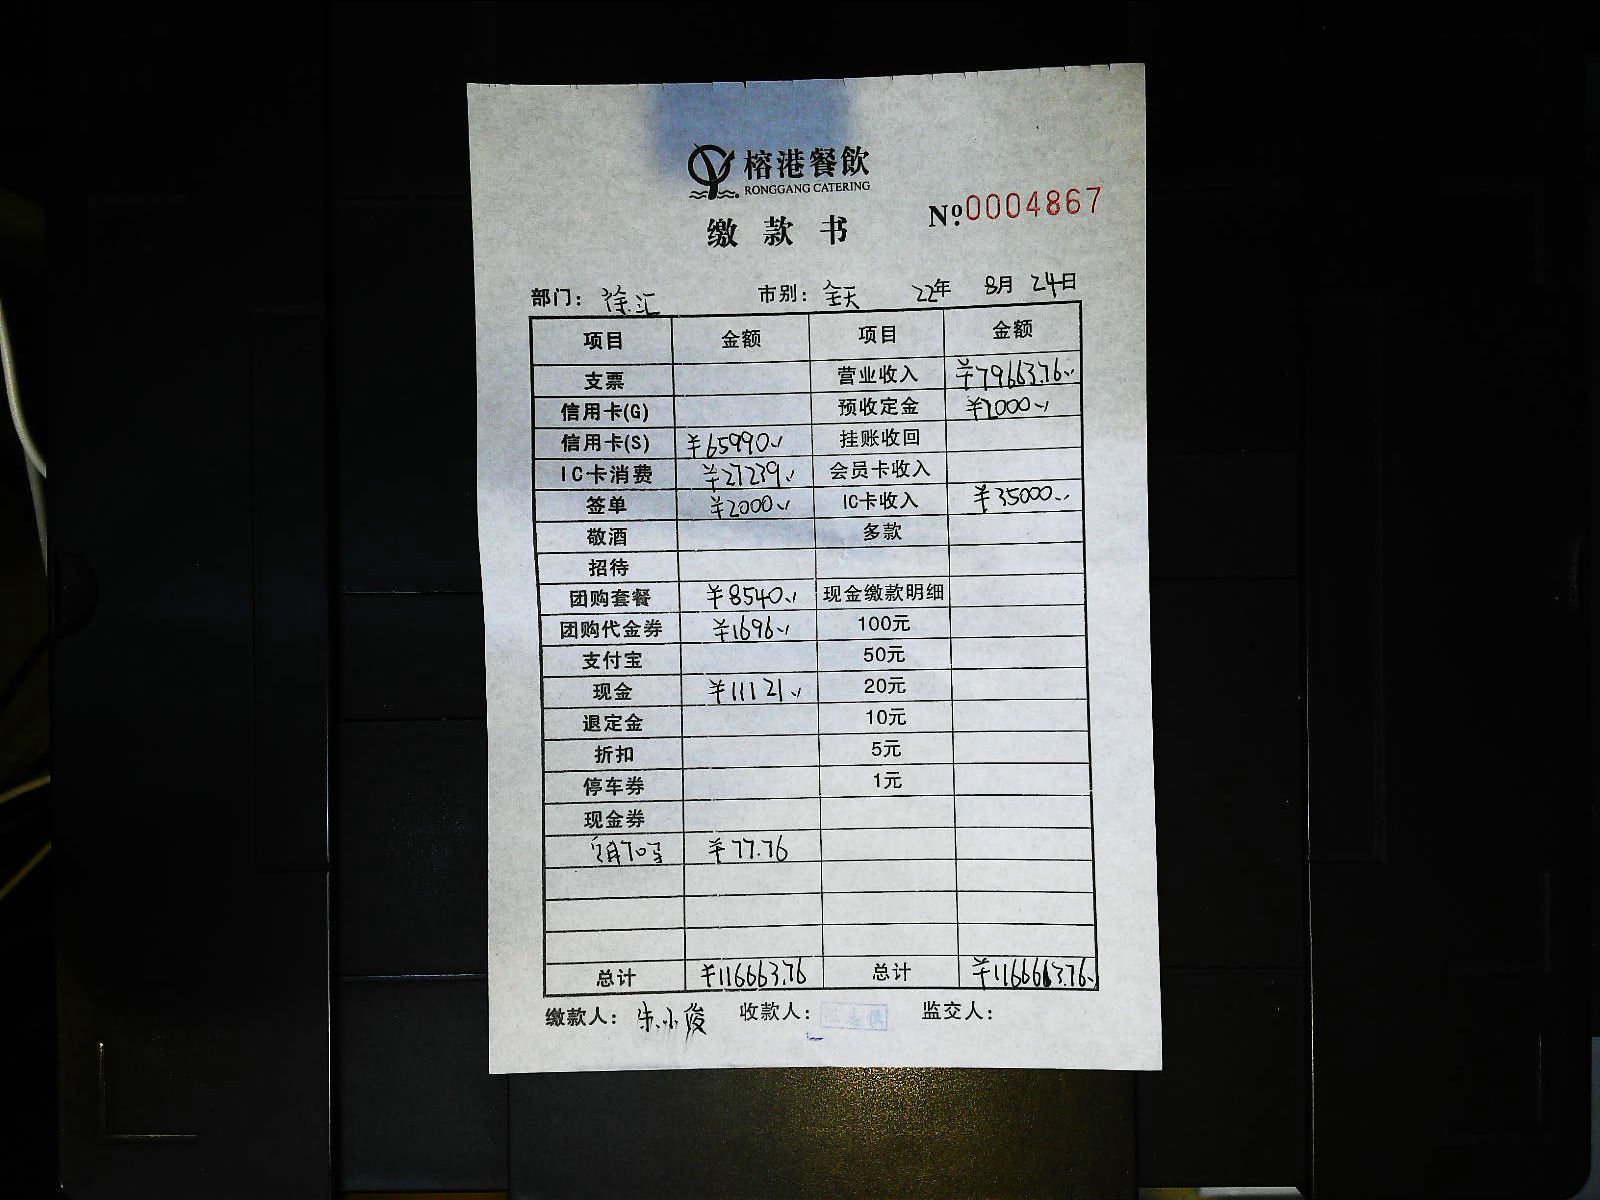 榕港餐飲
RONGGANG CATERING
缴款书
№0004867
部门：徐汇 市别：全天 22年 8月 24日
项目 金额 项目 金额
支票 营业收入 ¥79663.76
信用卡(G) 预收定金 ¥2000
信用卡(S) ¥65990 挂账收回
IC卡消费 ¥27239 会员卡收入
签单 ¥2000 IC卡收入 ¥35000
敬酒 多款
招待
团购套餐 ¥8540 现金缴款明细
团购代金券 ¥1696 100元
支付宝 50元
现金 ¥11121 20元
退定金 10元
折扣 5元
停车券 1元
现金券
¥77.76
总计 ¥116663.76 总计 ¥116663.76
缴款人：朱小俊 收款人： 监交人：